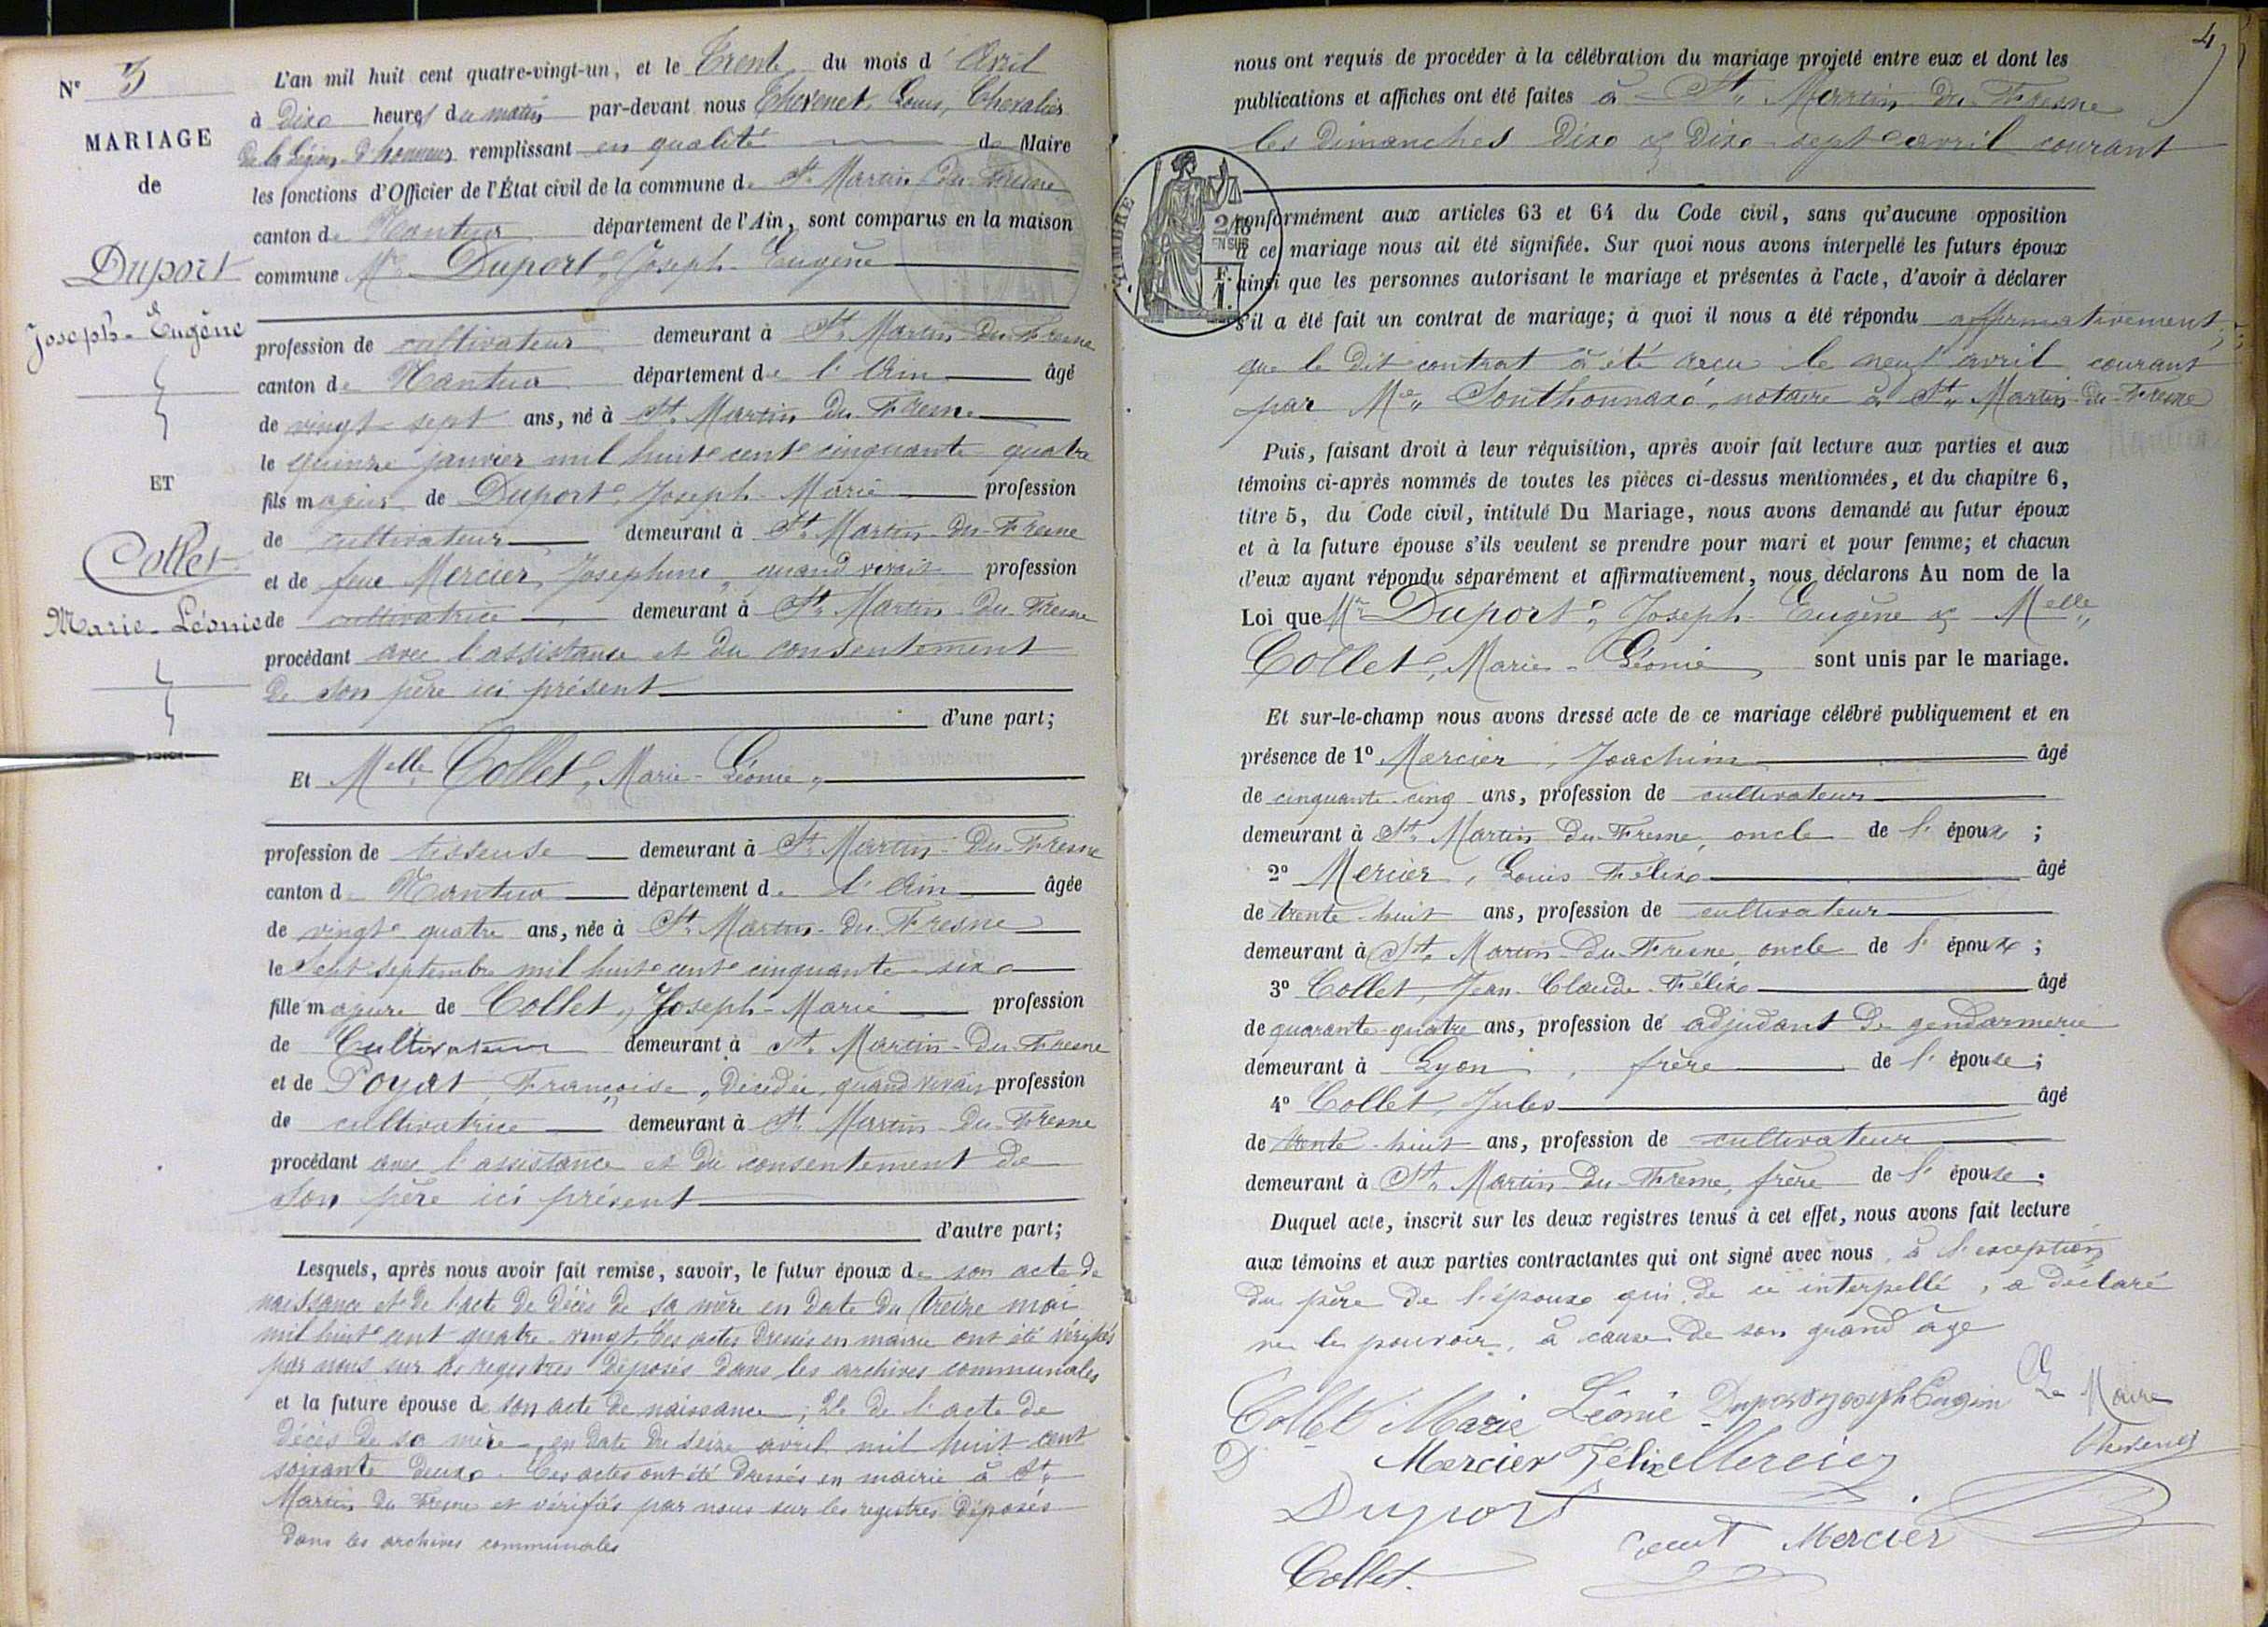 N° 3
MARIAGE
de
Duport
Joseph-Eugène
ET
Collet
Marie-Léonie
L'an mil huit cent quatre-vingt-un, et le Trente du mois d'Avril
à Dix heures du matin par-devant nous Chevenet, Louis, Chevalier
de la Légion d'honneur remplissant en qualité de Maire
les fonctions d'Officier de l'État civil de la commune de St Martin du Fresne
canton de Nantua département de l'Ain, sont comparus en la maison
commune Mr Duport, Joseph-Eugène
profession de cultivateur demeurant à St Martin-du-Fresne
canton de Nantua département de l'Ain âgé
de vingt-sept ans, né à St Martin du Fresne
le quinze janvier mil huit cent cinquante-quatre
fils majeur de Duport, Joseph-Marie profession
de cultivateur demeurant à St Martin-du-Fresne
et de feue Mercier, Josephine, quand vivait profession
de cultivatrice demeurant à St Martin-du-Fresne
procédant avec l'assistance et du consentement
de son père ici présent
d'une part;
Et Melle Collet, Marie-Léonie,
profession de tisseuse demeurant à St Martin-Du-Fresne
canton de Nantua département de l'Ain âgée
de vingt-quatre ans, née à St Martin-du-Fresne
le sept septembre mil huit cent cinquante-six
fille majeure de Collet, Joseph-Marie profession
de Cultivateur demeurant à St Martin-Du-Fresne
et de Poyat, Françoise, décédée, quand vivait profession
de cultivatrice demeurant à St Martin-Du-Fresne
procédant avec l'assistance et du consentement de
son père ici présent
d'autre part;
Lesquels, après nous avoir fait remise, savoir, le futur époux de son acte de
naissance et de l'acte de décès de sa mère en date du treize mai
mil huit cent quatre-vingt. Ces actes dressés en mairie ont été vérifiés
par nous sur les registres déposés dans les archives communales
et la future épouse de son acte de naissance; 2° de l'acte de
décès de sa mère, en date du seize avril mil huit cent
soixante deux. Ces actes ont été dressés en mairie à St
Martin du Fresne et vérifiés par nous sur les registres déposés
dans les archives communales
4
nous ont requis de procéder à la célébration du mariage projeté entre eux et dont les
publications et affiches ont été faites à St Martin-du-Fresne
les Dimanches Dix & Dix-sept avril courant
TIMBRE
2/10
EN SUS
F.
1.
conformément aux articles 63 et 64 du Code civil, sans qu'aucune opposition
à ce mariage nous ait été signifiée. Sur quoi nous avons interpellé les futurs époux
ainsi que les personnes autorisant le mariage et présentes à l'acte, d'avoir à déclarer
s'il a été fait un contrat de mariage; à quoi il nous a été répondu affirmativement,
que le dit contrat a été recu le neuf avril courant
par Me Southonnax, notaire à St Martin-du-Fresne
Puis, faisant droit à leur réquisition, après avoir fait lecture aux parties et aux
témoins ci-après nommés de toutes les pièces ci-dessus mentionnées, et du chapitre 6,
titre 5, du Code civil, intitulé Du Mariage, nous avons demandé au futur époux
et à la future épouse s'ils veulent se prendre pour mari et pour femme; et chacun
d'eux ayant répondu séparément et affirmativement, nous déclarons Au nom de la
Loi que Mr Duport, Joseph-Eugène & Melle
Collet, Marie-Léonie sont unis par le mariage.
Et sur-le-champ nous avons dressé acte de ce mariage célébré publiquement et en
présence de 1° Mercier, Joachim âgé
de cinquante-cinq ans, profession de cultivateur
demeurant à St Martin du Fresne, oncle de l'époux;
2° Mercier, Louis Félix âgé
de trente-huit ans, profession de cultivateur
demeurant à St Martin-Du-Fresne, oncle de l'époux;
3° Collet, Jean-Claude-Félix âgé
de quarante-quatre ans, profession de adjudant de gendarmerie
demeurant à Lyon, frère de l'épouse;
4° Collet, Jules âgé
de trente-huit ans, profession de cultivateur
demeurant à St Martin-Du-Fresne, frère de l'épouse.
Duquel acte, inscrit sur les deux registres tenus à cet effet, nous avons fait lecture
aux témoins et aux parties contractantes qui ont signé avec nous à l'exception
du père de l'époux qui de ce interpellé, a déclaré
ne le pouvoir, à cause de son grand âge
Collet Marie Léonie Duport Joseph Eugène Le Maire
D Mercier Félix Mercier Chevenet
Duport
Mercier
Collet.